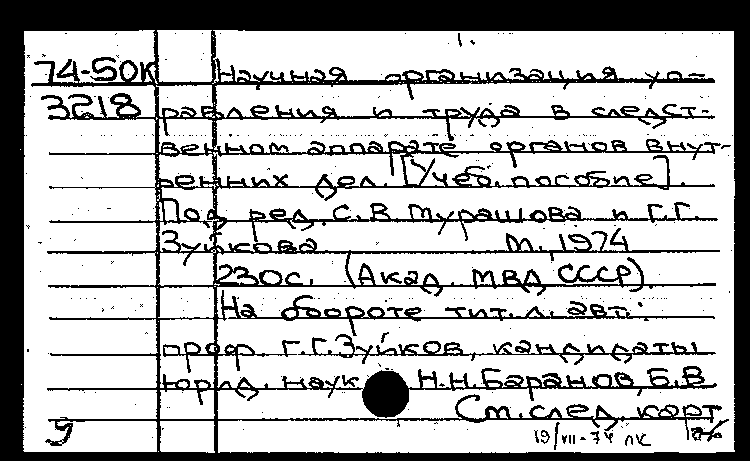 1.
74-50К Научная организация уп-
3218 равления и труда в следст-
венном аппарате органов внут-
ренних дел. [Учеб. пособие].
Под ред. С.В. Мурашова и Г.Г.
Зуйкова М., 1974
230с. (Акад. МВД СССР).
На обороте тит. л. авт.:
проф. Г.Г. Зуйков, кандидаты
юрид. наук Н.Н. Баранов, Б.В
См. след. карт
9 19/VII-74 ЛК